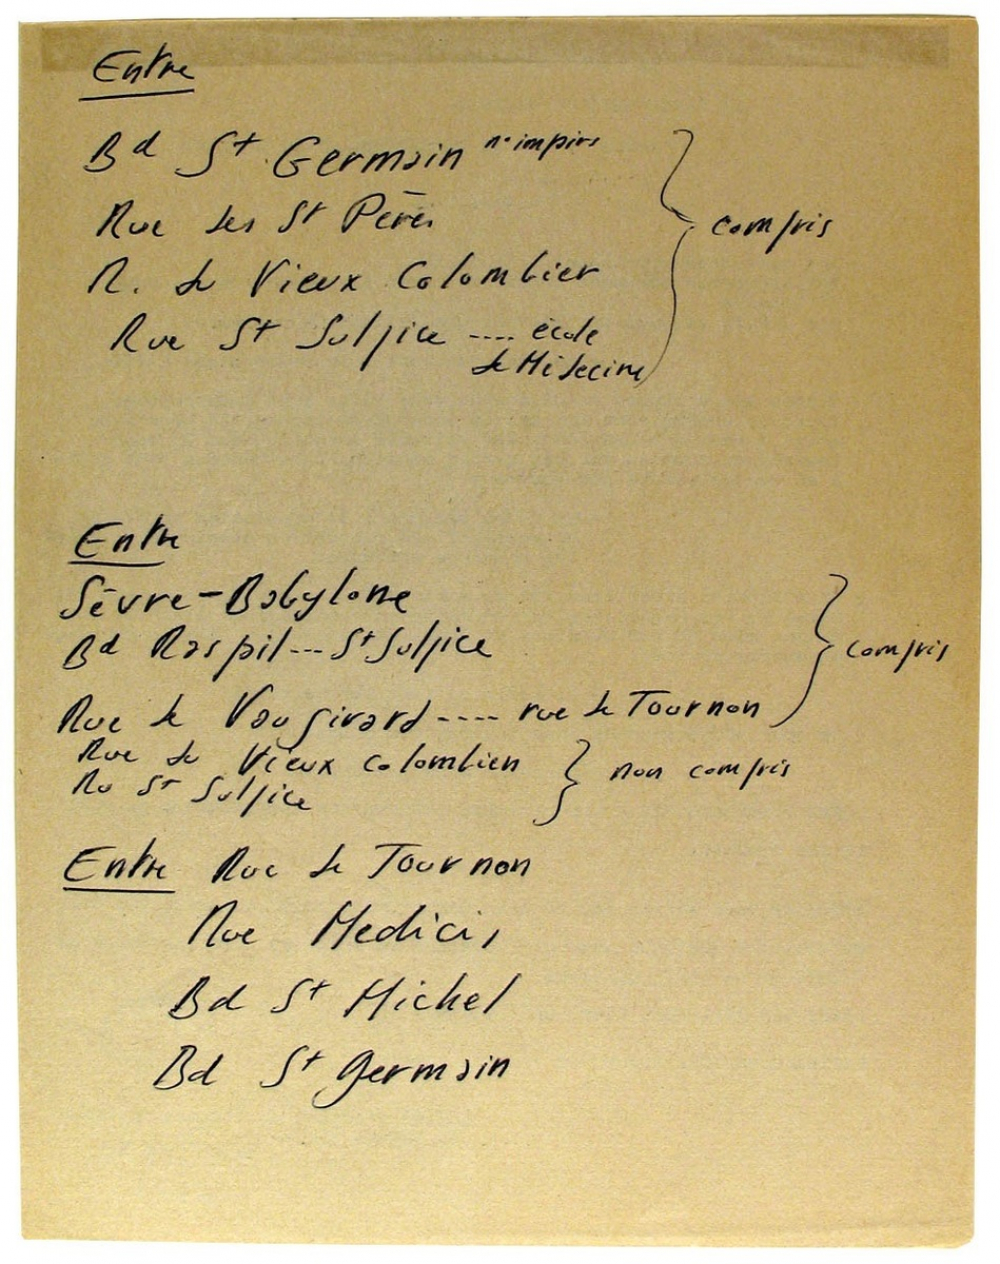 Entre
Bd St Germain n° impirs
Rue des St Pères
R. du Vieux Colombier
Rue St Sulpice .... école
de Médecine
compris
Entre
Sèvre-Babylone
Bd Raspil --- St Sulpice
Rue de Vaugirard ---- rue de Tournon
compris
Rue du Vieux colombien
Ru St Sulpice
non compris
Entre Rue de Tournon
Rue Medicis
Bd St Michel
Bd St germain